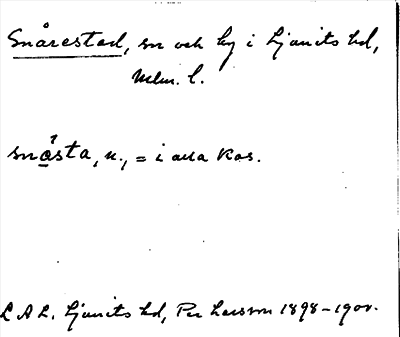 Snårestad, sn och by i Ljunits hd,
Mlm. l.
snåsta, n., = i alla kas.
L A L. Ljunits hd, Per Larsson 1898–1900.